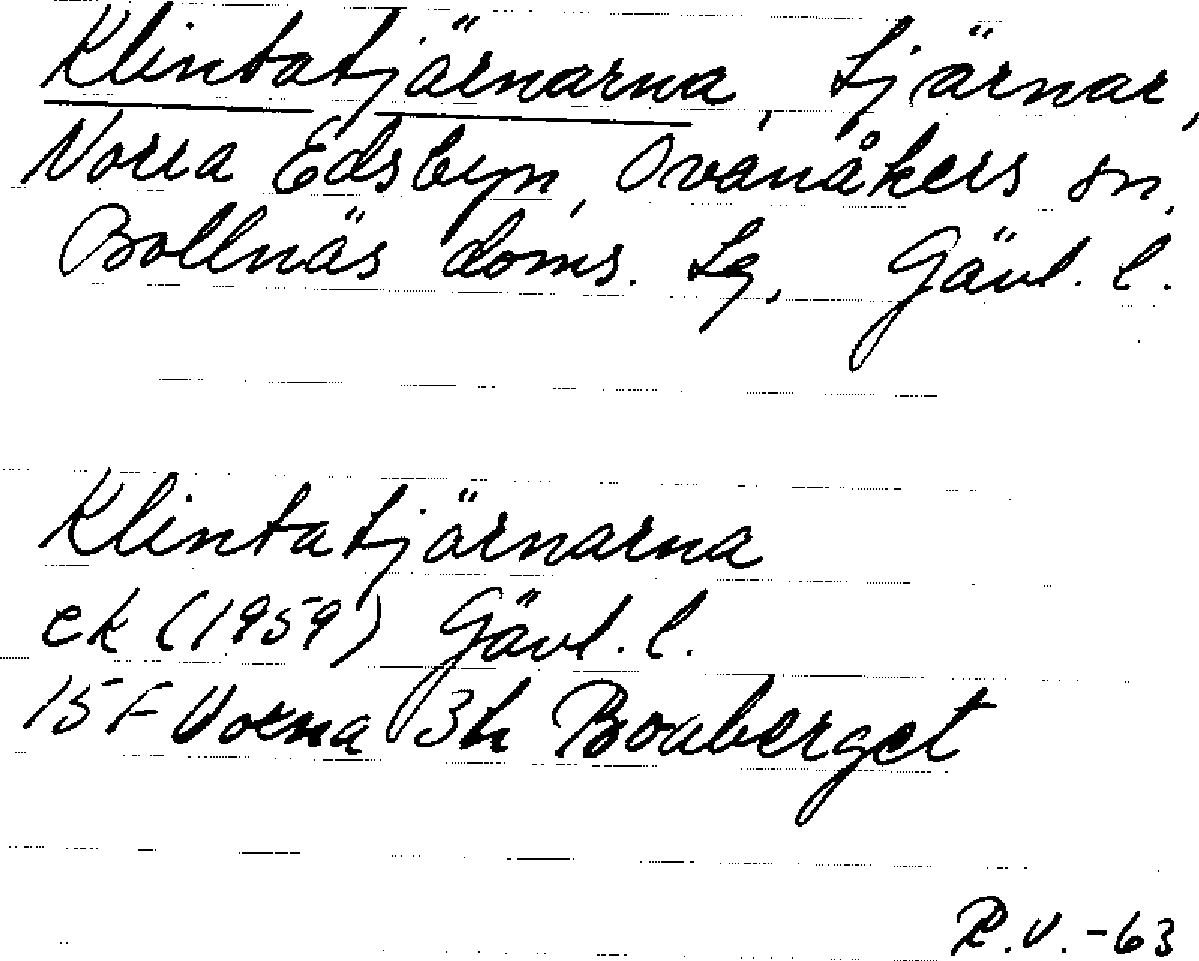 Klintatjärnarna, tjärnar,
Norra Edsbyn, Ovanåkers sn,
Bollnäs doms. tg, Gävl. l.
Klintatjärnarna
ek (1959) Gävl. l.
15 F Voxna 3h Boaberget
R.V. -63